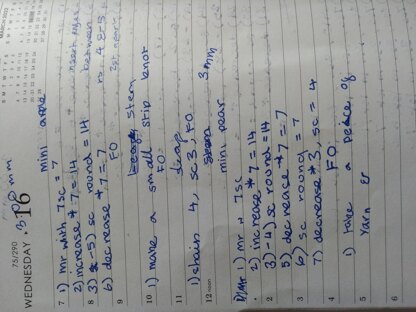 MARCH 2022
75/290
WEDNESDAY
16
3.00 mm
mini apple
7 1) mr with 7sc = 7
2) increase * 7 = 14
8 3) -5) sc round = 14 between
6) decrease * 7 = 7
FO
9
stem
10 1) make a small slip knot
FO
11
1) chain 4, sc 3, FO
12 noon
3 mm
mini pear
1) mr w 7sc
2) increase * 7 = 14
2 3) -4) sc round = 14
5) decreace * 7 = 7
3 6) sc round = 7
7) decrease * 3, sc = 4
4 FO
1) take a peice of
5 yarn
6